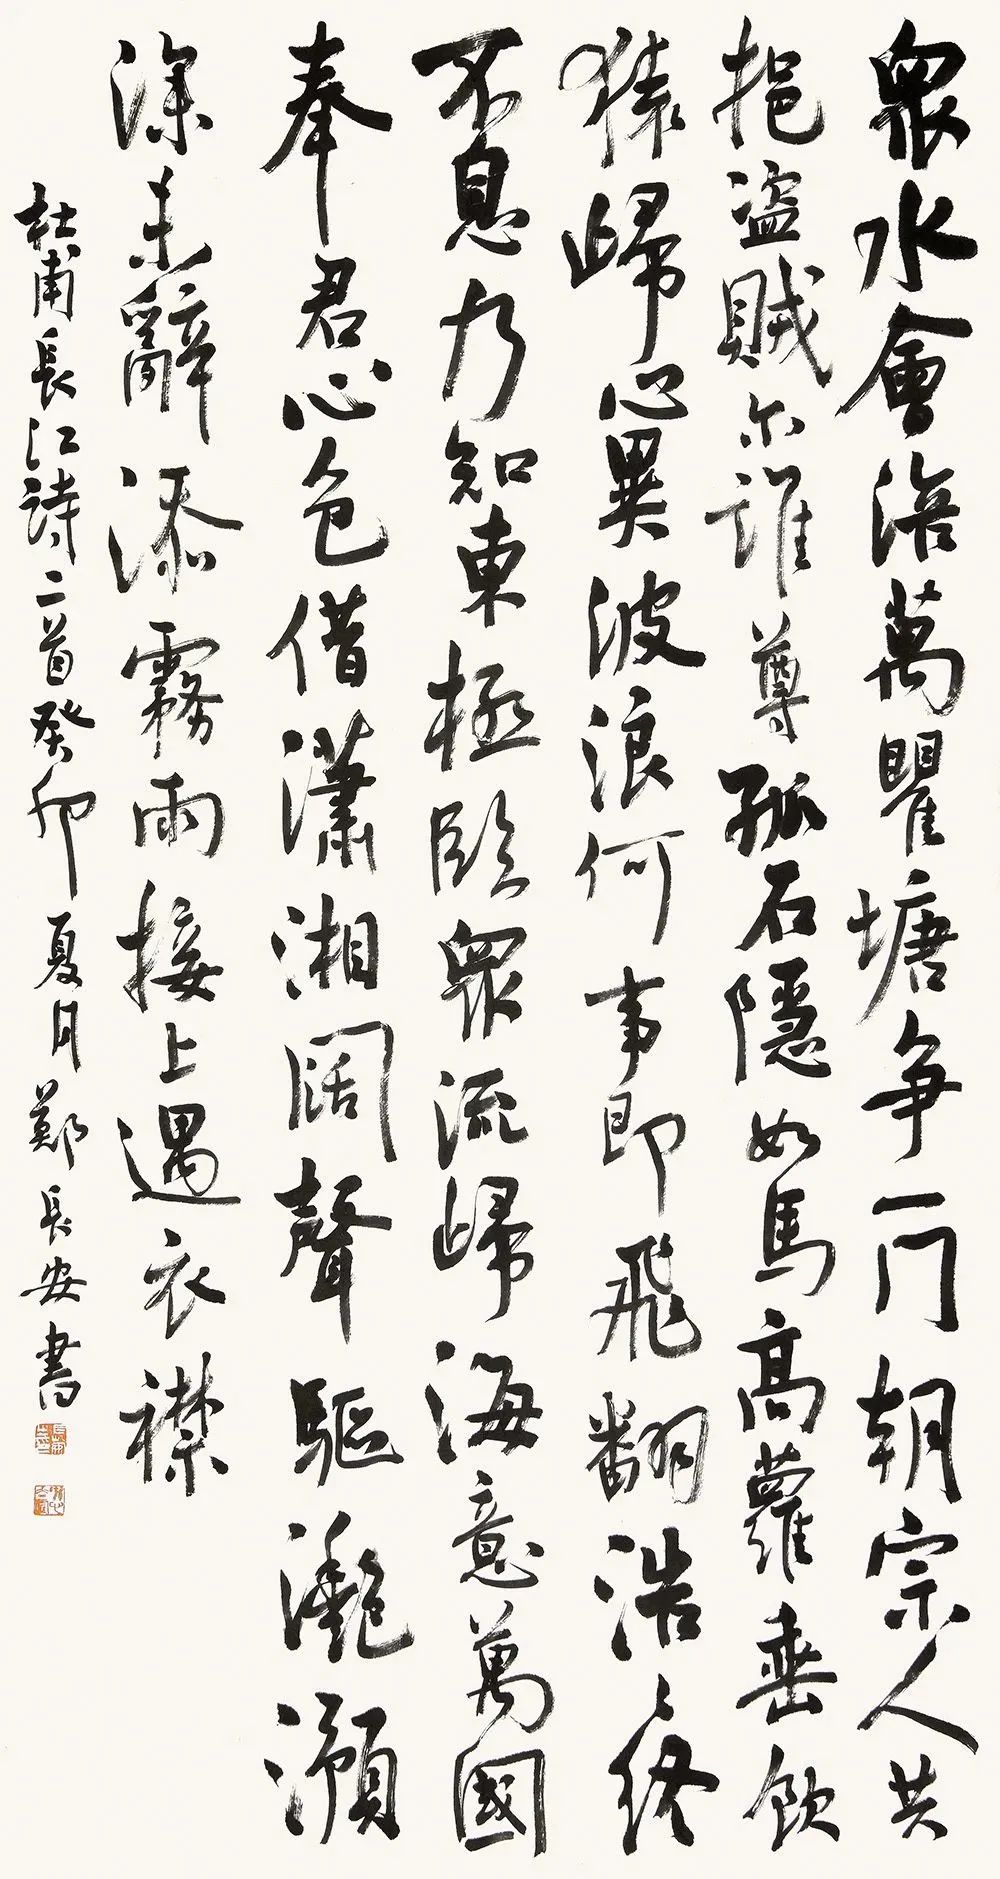 眾水會涪萬瞿塘争一門朝宗人共
挹盜賊尔誰尊孤石隱如馬高蘿垂飲
猿歸心異波浪何事即飛翻浩〻終
不息乃知東極臨眾流歸海意萬國
奉君心色借瀟湘闊聲驅灧澦
深未辭添霧雨接上遇衣襟
杜甫長江詩二首癸卯夏月鄭長安書